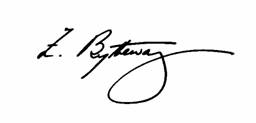 Z. Bytheway